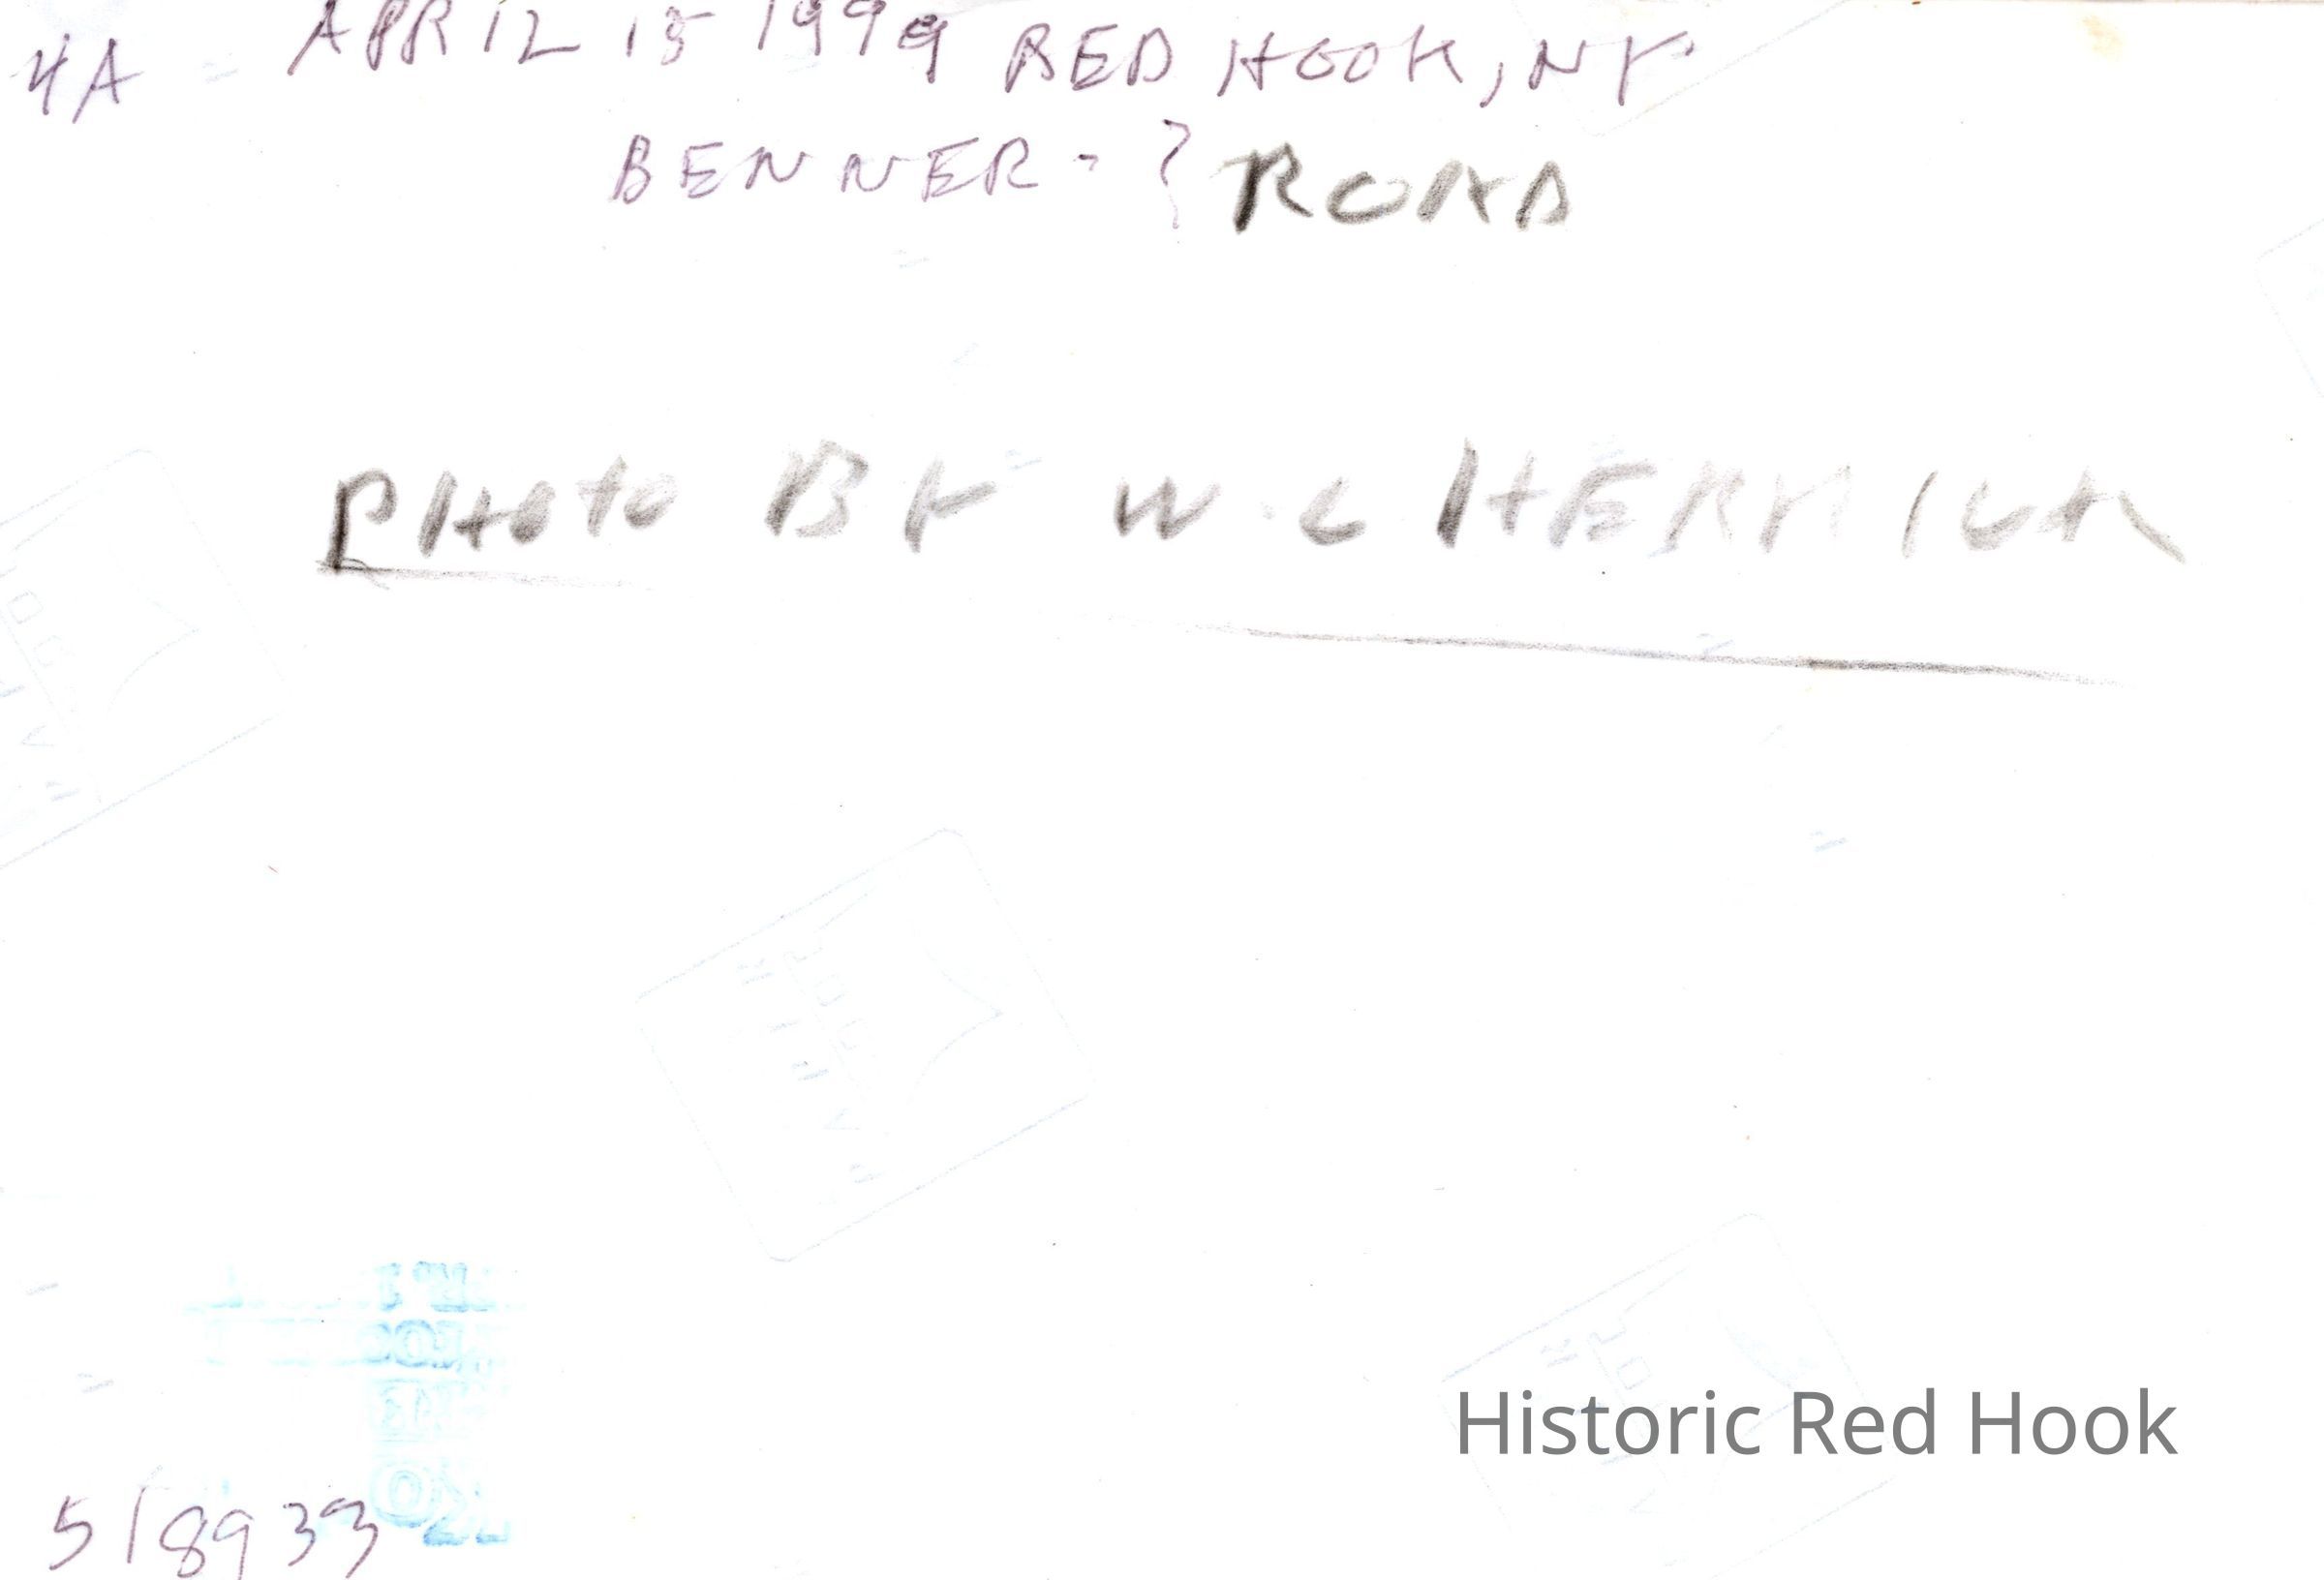 4A APRIL 15 1999 RED HOOK, NY
BENNER - ? ROAD
PHOTO BY W.C HERRICK
Historic Red Hook
518933